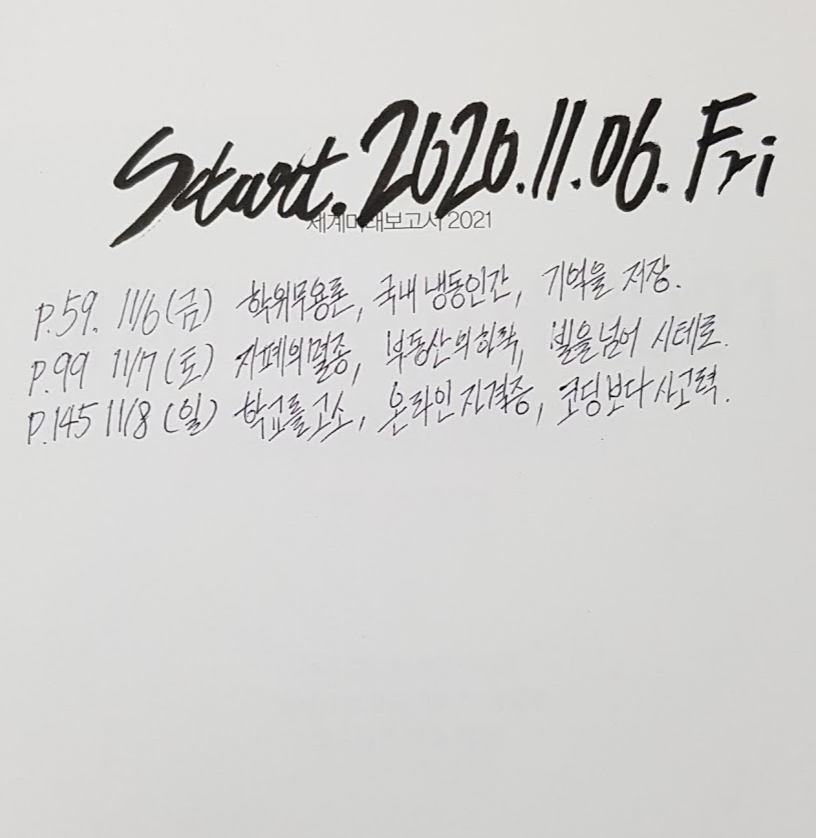 Start. 2020.11.06. Fri
세계미래보고서 2021
P.59. 11/6 (금) 학위무용론, 국내 냉동인간, 기억을 저장.
P.99 11/7 (토) 자폐의 멸종, 부동산의 하락, 빌을 넘어 시테로.
P.145 11/8 (일) 학교를 고소, 온라인 자격증, 코딩보다 사고력.